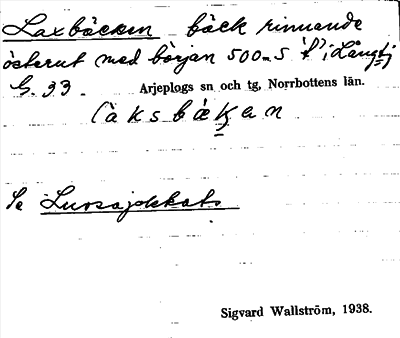 Laxbäcken bäck rinnande
österut med början 500 m S "t" i Långtj
G. 33. Arjeplogs sn och tg, Norrbottens län.
làksbäḱen
Se
Sigvard Wallström, 1938.